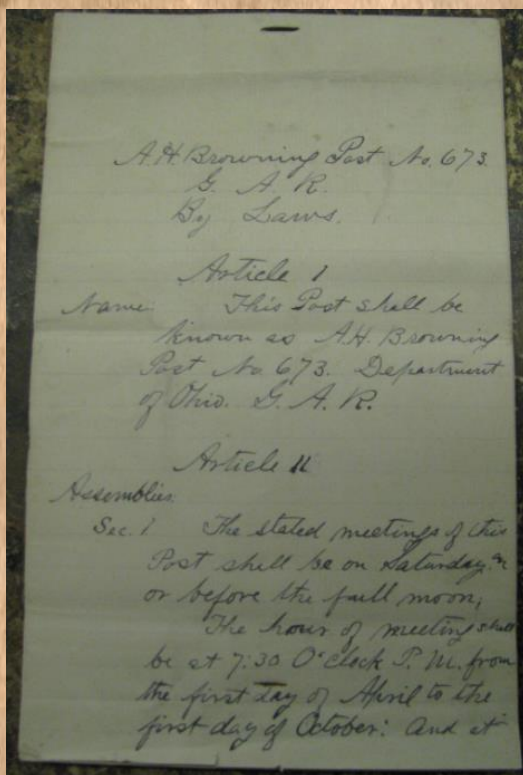 A.H. Browning Post No. 673.
G. A. R.
By Laws.
Article I
Name: This Post shall be
known as A.H. Browning
Post No. 673. Department
of Ohio. G. A. R.
Article II
Assemblies.
Sec. 1 The stated meetings of this
Post shall be on Saturday on
or before the full moon,
The hour of meeting shall
be at 7:30 O'clock P. M. from
the first day of April to the
first day of October: And at